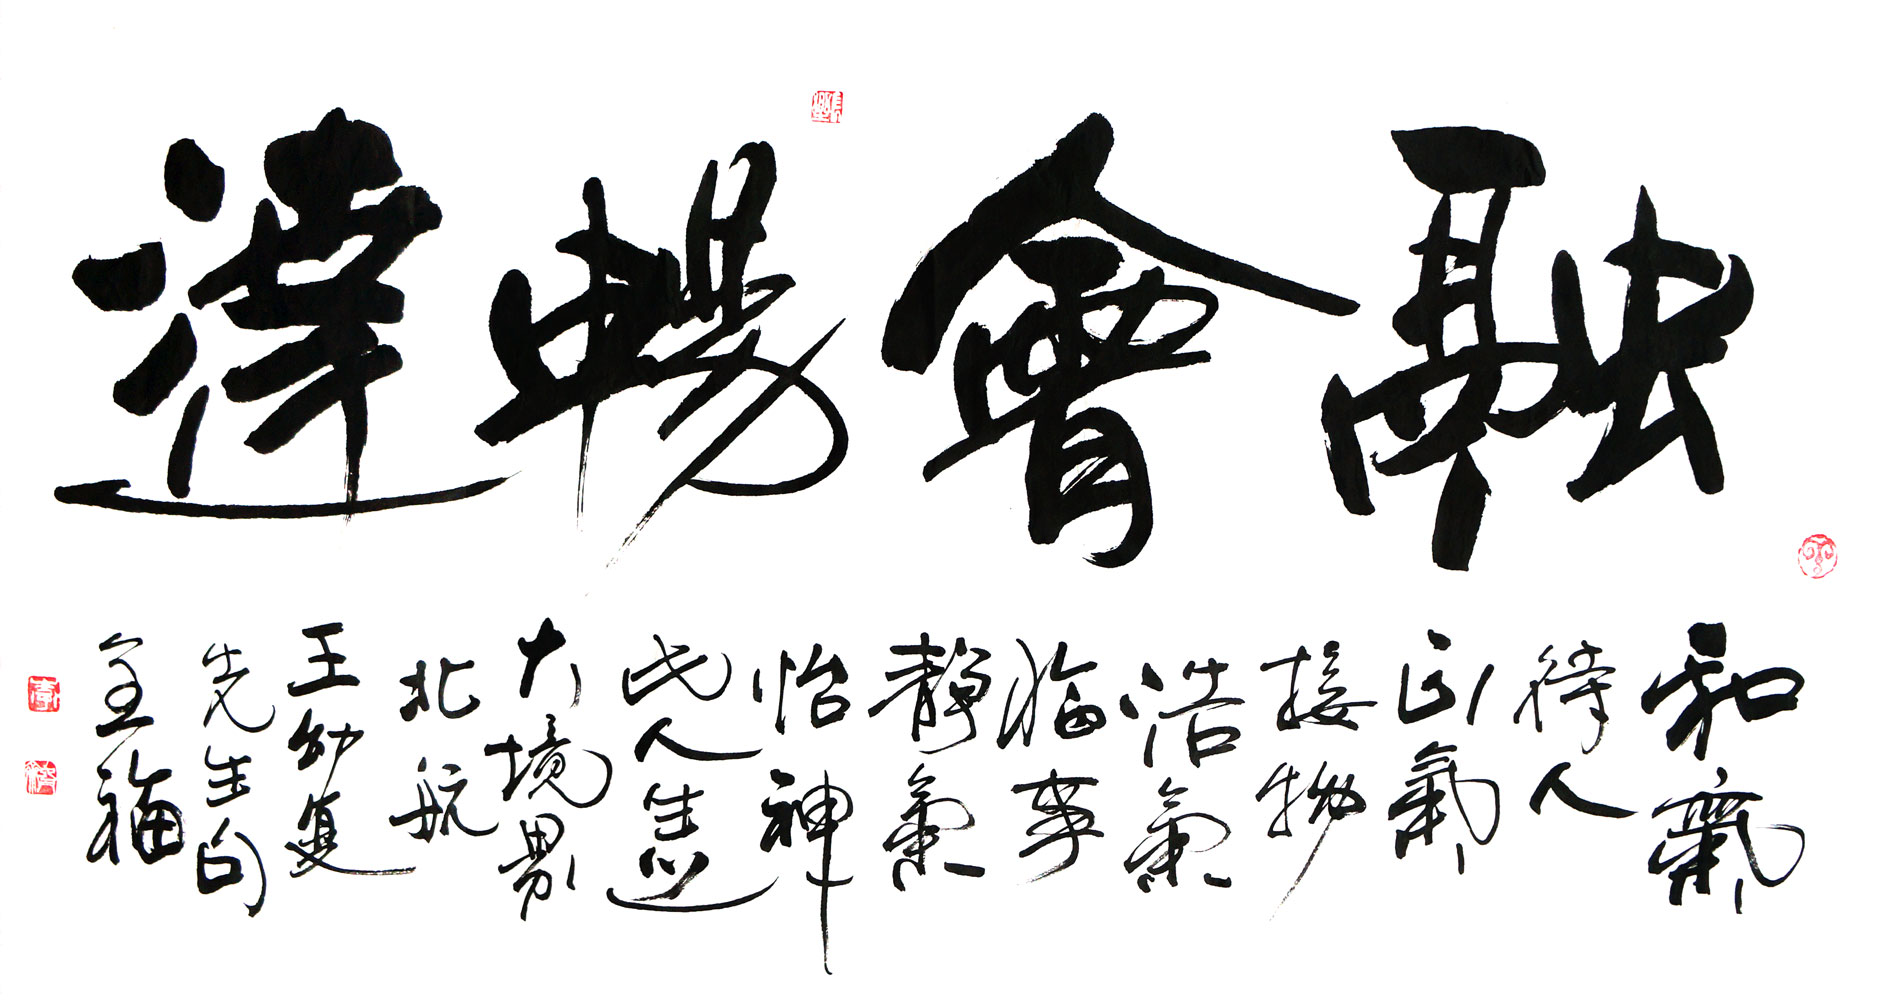 融會暢達
和氣
待人
正氣
接物
浩氣
臨事
靜氣
怡神
此人生之
大境界
北航
王幼复
先生句
福